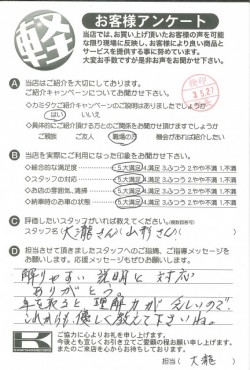 軽
お客様アンケート
当店では、お買い上げ頂いたお客様の声を可能
な限り現場に反映し、お客様により良い商品と
サービスを提供する事に努めています。
大変お手数ですが是非お声をお聞かせ下さい。
A 当店はご紹介を大切にしております。
ご紹介キャンペーンについてお聞かせ下さい。
はい いいえ
ご親族 ご友人 職場の方 機会があれば紹介したい
B 当店を実際にご利用になった印象をお聞かせ下さい。
・総合的な満足度 5.大満足 4.満足 3.ふつう 2.やや不満 1.不満
・スタッフの対応 5.大満足 4.満足 3.ふつう 2.やや不満 1.不満
・お店の雰囲気、清掃 5.大満足 4.満足 3.ふつう 2.やや不満 1.不満
・納車時のお車の状態 5.大満足 4.満足 3.ふつう 2.やや不満 1.不満
C 評価したいスタッフがいれば教えてください。(複数回答可)
スタッフ名(大瀧さん)(山形さん)
D 担当させて頂きましたスタッフへのご指摘、ご指導メッセージを
お願いします。応援メッセージもぜひお願いします。
解りやすい説明と対応
ありがとう。
年を取ると理解力が乏しいので、
これからも優しく教えて下さいね。
K
ご協力に心よりお礼を申し上げます。
今後とも宜しくお引き立てご愛顧の程お願い申し上げます。
またのご来店を心よりお待ちしております。
担当(大瀧)